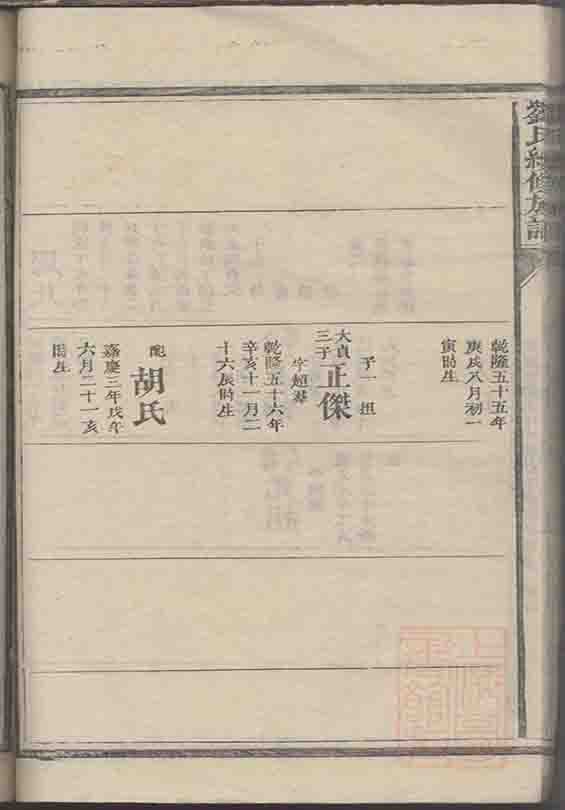 劉氏續修族譜
乾隆五十五年
庚戌八月初一
寅時生
子一 担
大貞
三子
正傑
字超羣
乾隆五十六年
辛亥十一月二
十六辰時生
配
胡氏
嘉慶三年戊午
六月二十一亥
時生